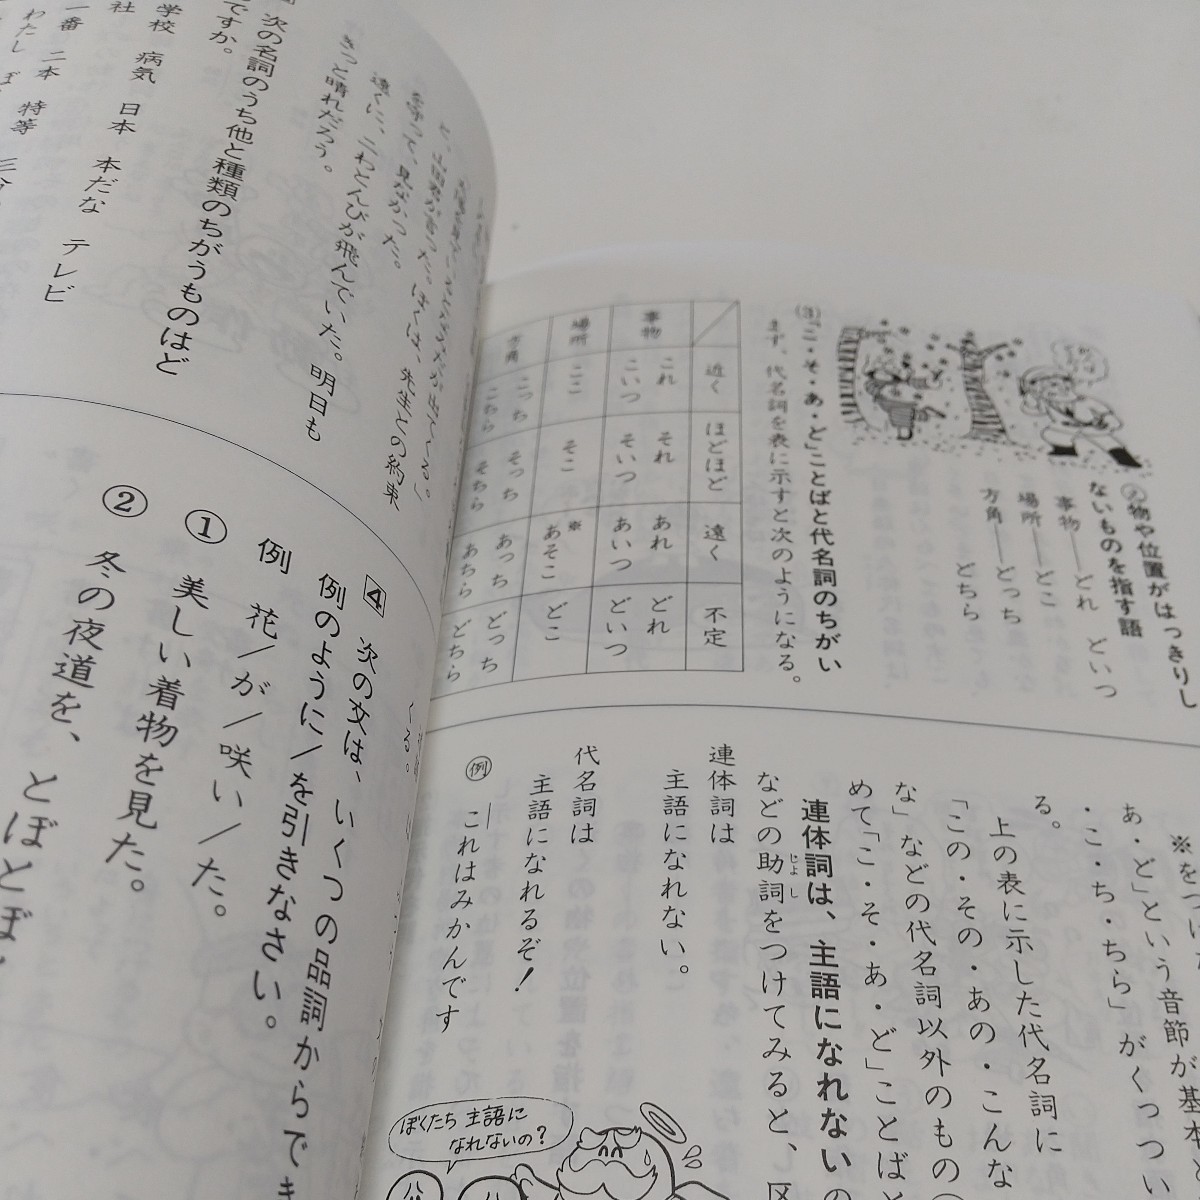 の物や位置がはっきりし
ないものを指す語
事物――どれ どいつ
場所――どこ
方角――どっち
どちら
(3)「こ・そ・あ・ど」ことばと代名詞のちがい
まず、代名詞を表に示すと次のようになる。
近く ほどほど 遠く 不定
事物
これ それ あれ どれ
こいつ そいつ あいつ どいつ
場所
ここ そこ ※あそこ どこ
方角
こっち そっち あっち どっち
こちら そちら あちら どちら
あ・ど」という音節が基本と
・こ・ち・ちら」がくっつい
る。
上の表に示した代名詞に
「この・その・あの・こんな
な」などの代名詞以外のもの
めて「こ・そ・あ・ど」ことば
連体詞は、主語になれない
などの助詞をつけてみると、区
じょし
連体詞は
主語になれない。
代名詞は
主語になれるぞ!
例 これはみかんです
ぼくたち 主語に
なれないの?
を守って、見なかった。
遠くに、二わとんびが飛んでいた。明日も
きっと晴れだろう。
次の名詞のうち他と種類のちがうものはど
ですか。
学校 病気 日本 本だな テレビ
社
一番 二本 特等
わたし
4 次の文は、いくつの品詞からでき
例のように/を引きなさい。
例 花/が/咲い/た。
① 美しい着物を見た。
② 冬の夜道を、とぼとぼ